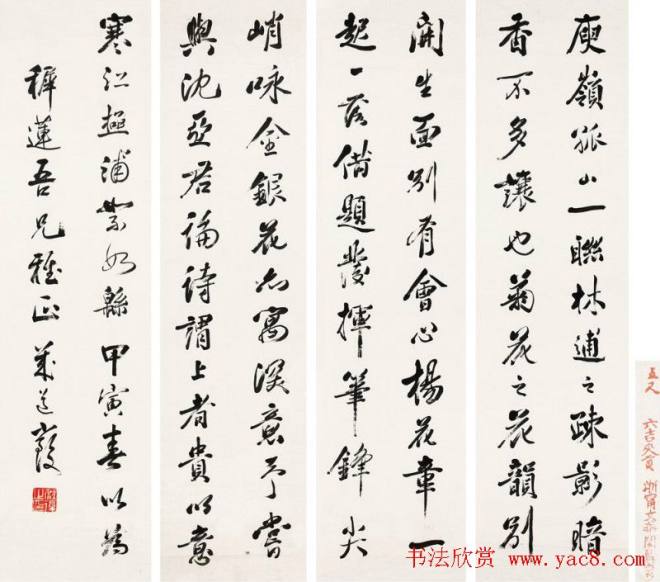 庾嶺孤山一聯林逋之疎影暗
香不多讓也菊花之花韻別
開生面別有會心楊花章一
起一落借題發揮筆鋒尖
峭咏金銀花亦寓深意予嘗
與沈亞君論詩謂上者貴以意
寒江極浦 甲寅春以為
穉蓮吾兄雅正 霞
五尺
书法欣赏 www.yac8.com